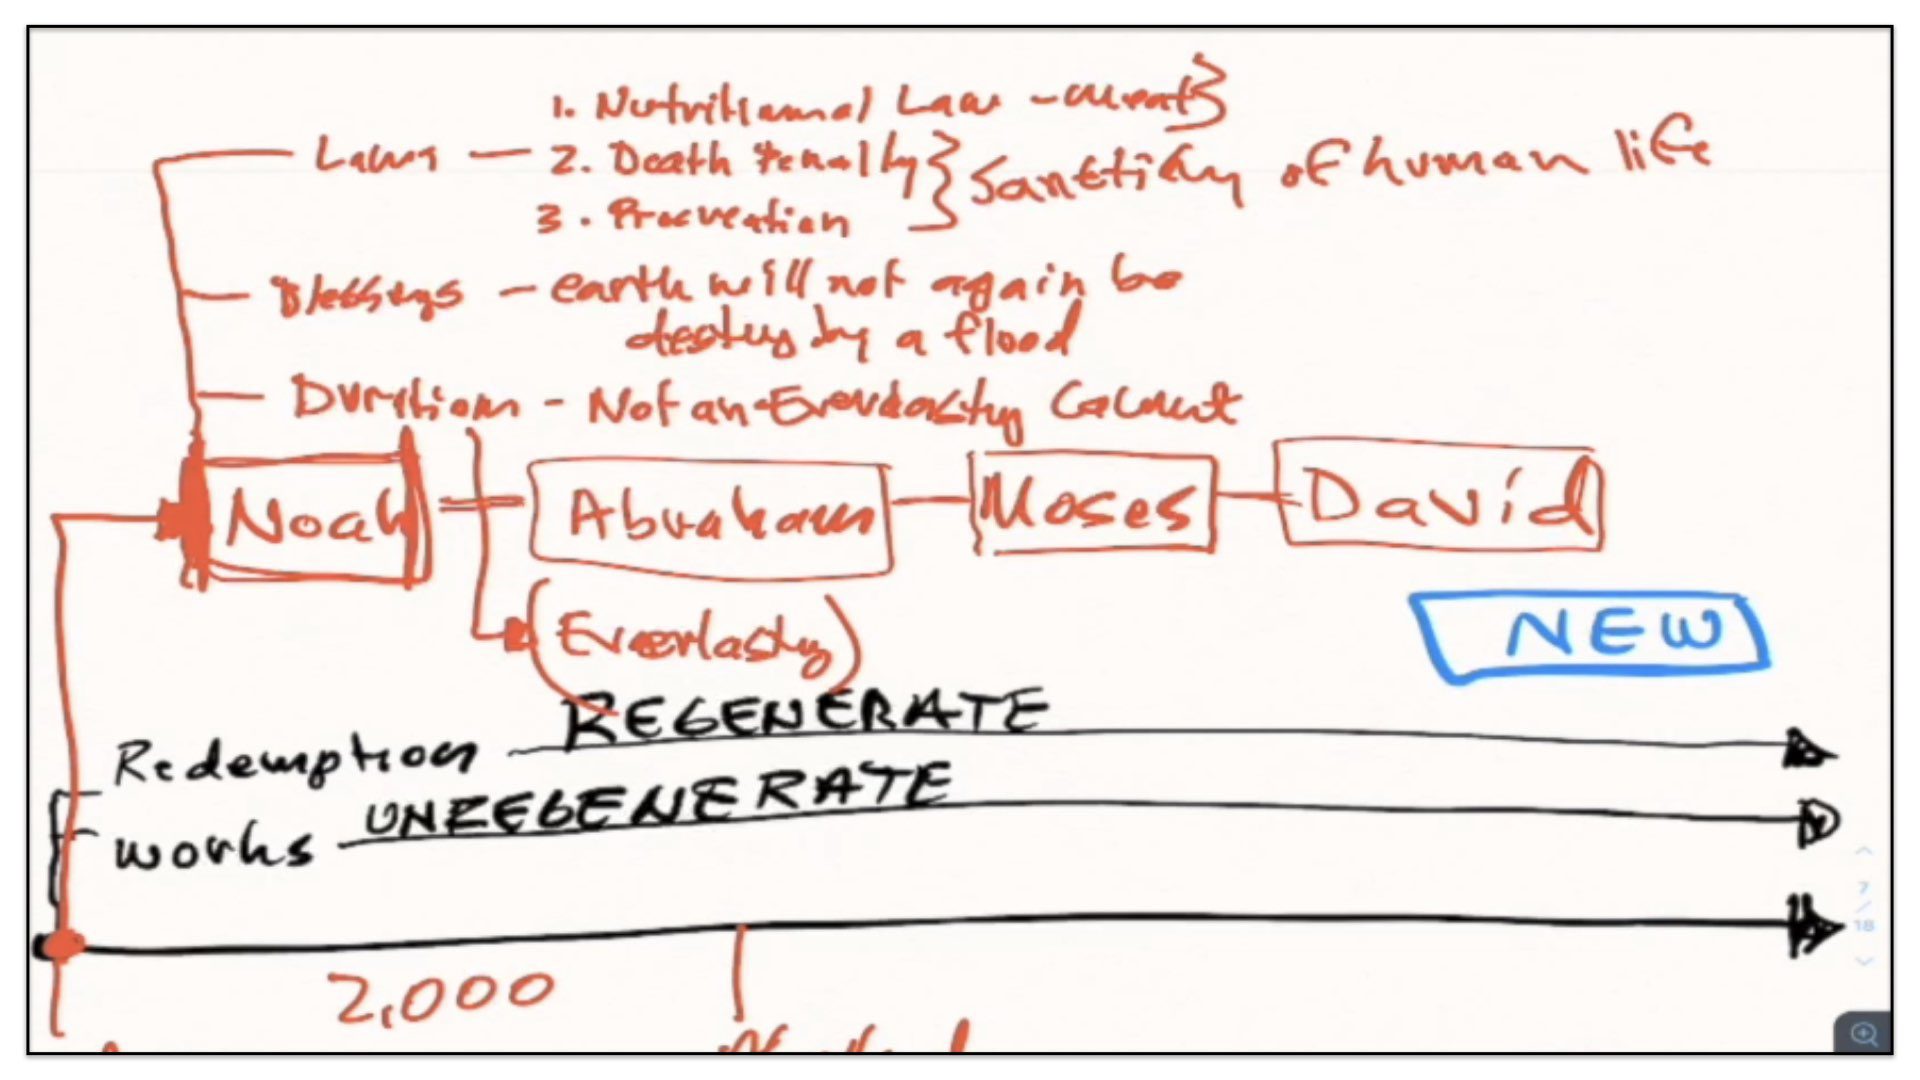 1. Nutritional Law - meat
Laws - 2. Death Penalty
Sanctity of human life
3. Procreation
Blessings - earth will not again be
destroy by a flood
Duration - Not an Everlasting Covenant
Noah
Abraham
Moses
David
(Everlasting)
NEW
REGENERATE
Redemption
UNREGENERATE
works
7
/
18
2,000